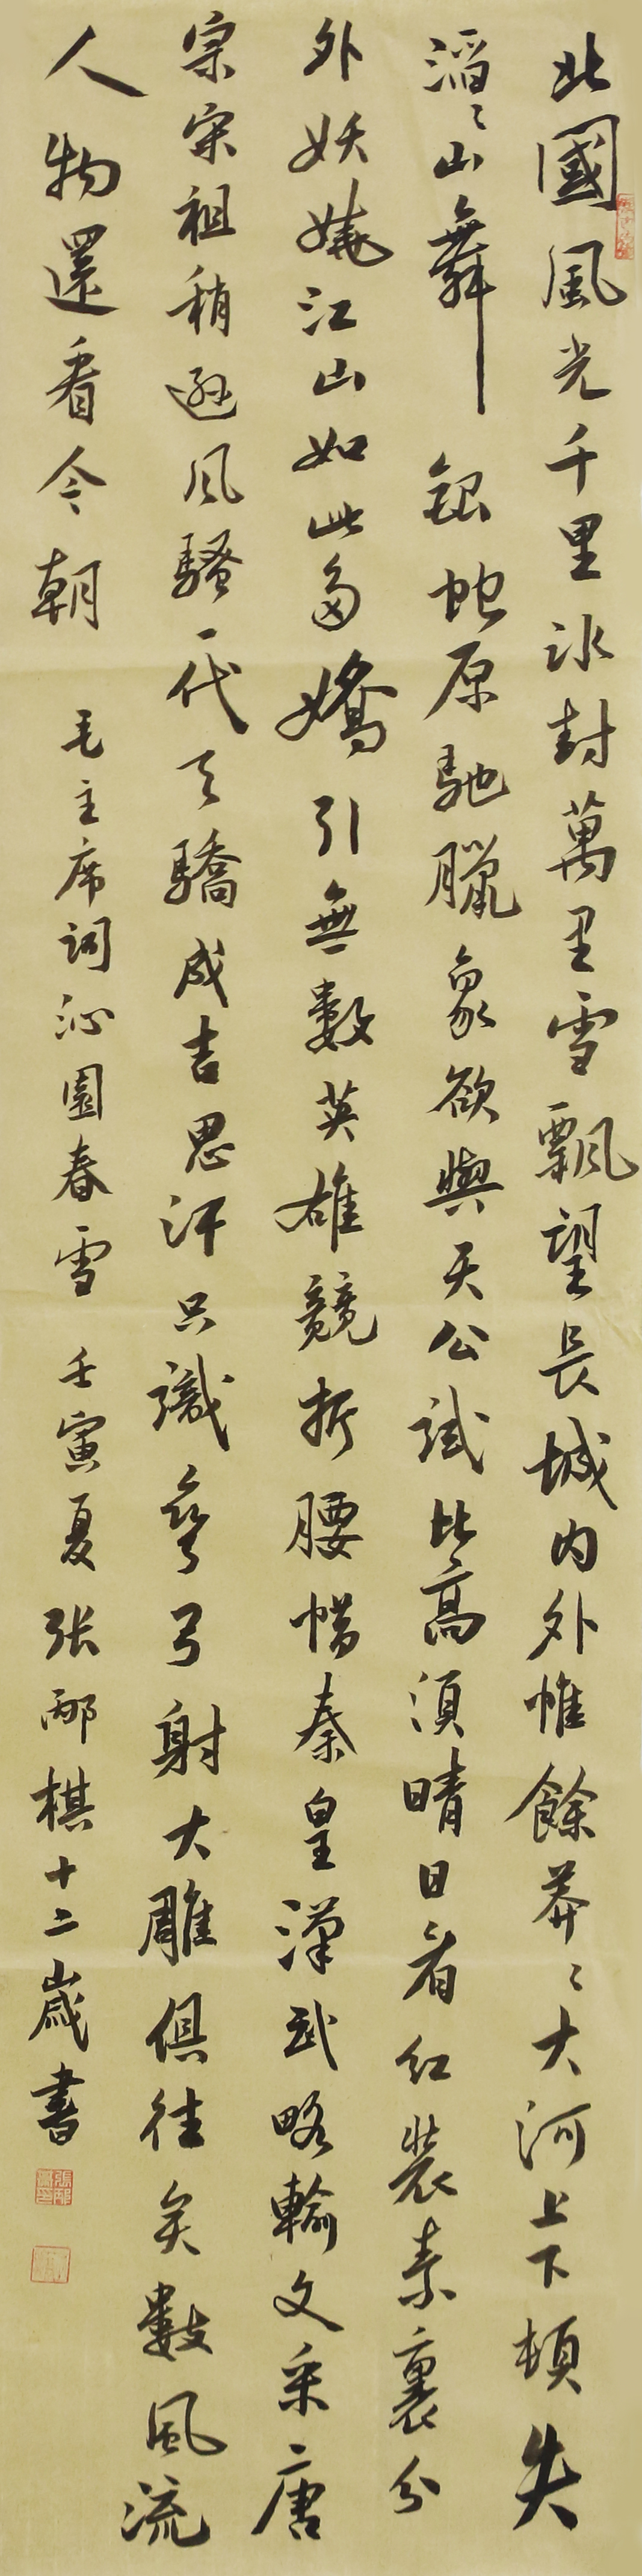 北國風光千里冰封萬里雪飄望長城内外惟餘莽〻大河上下頓失
滔〻山舞銀蛇原馳臘象欲與天公試比高須晴日看紅裝素裹分
外妖嬈江山如此多嬌引無數英雄競折腰惜秦皇漢武略輸文采唐
宗宋祖稍遜风騷一代天驕成吉思汗只識彎弓射大雕俱往矣數風流
人物還看今朝 毛主席詞沁園春雪 壬寅夏张邴棋十二歲書